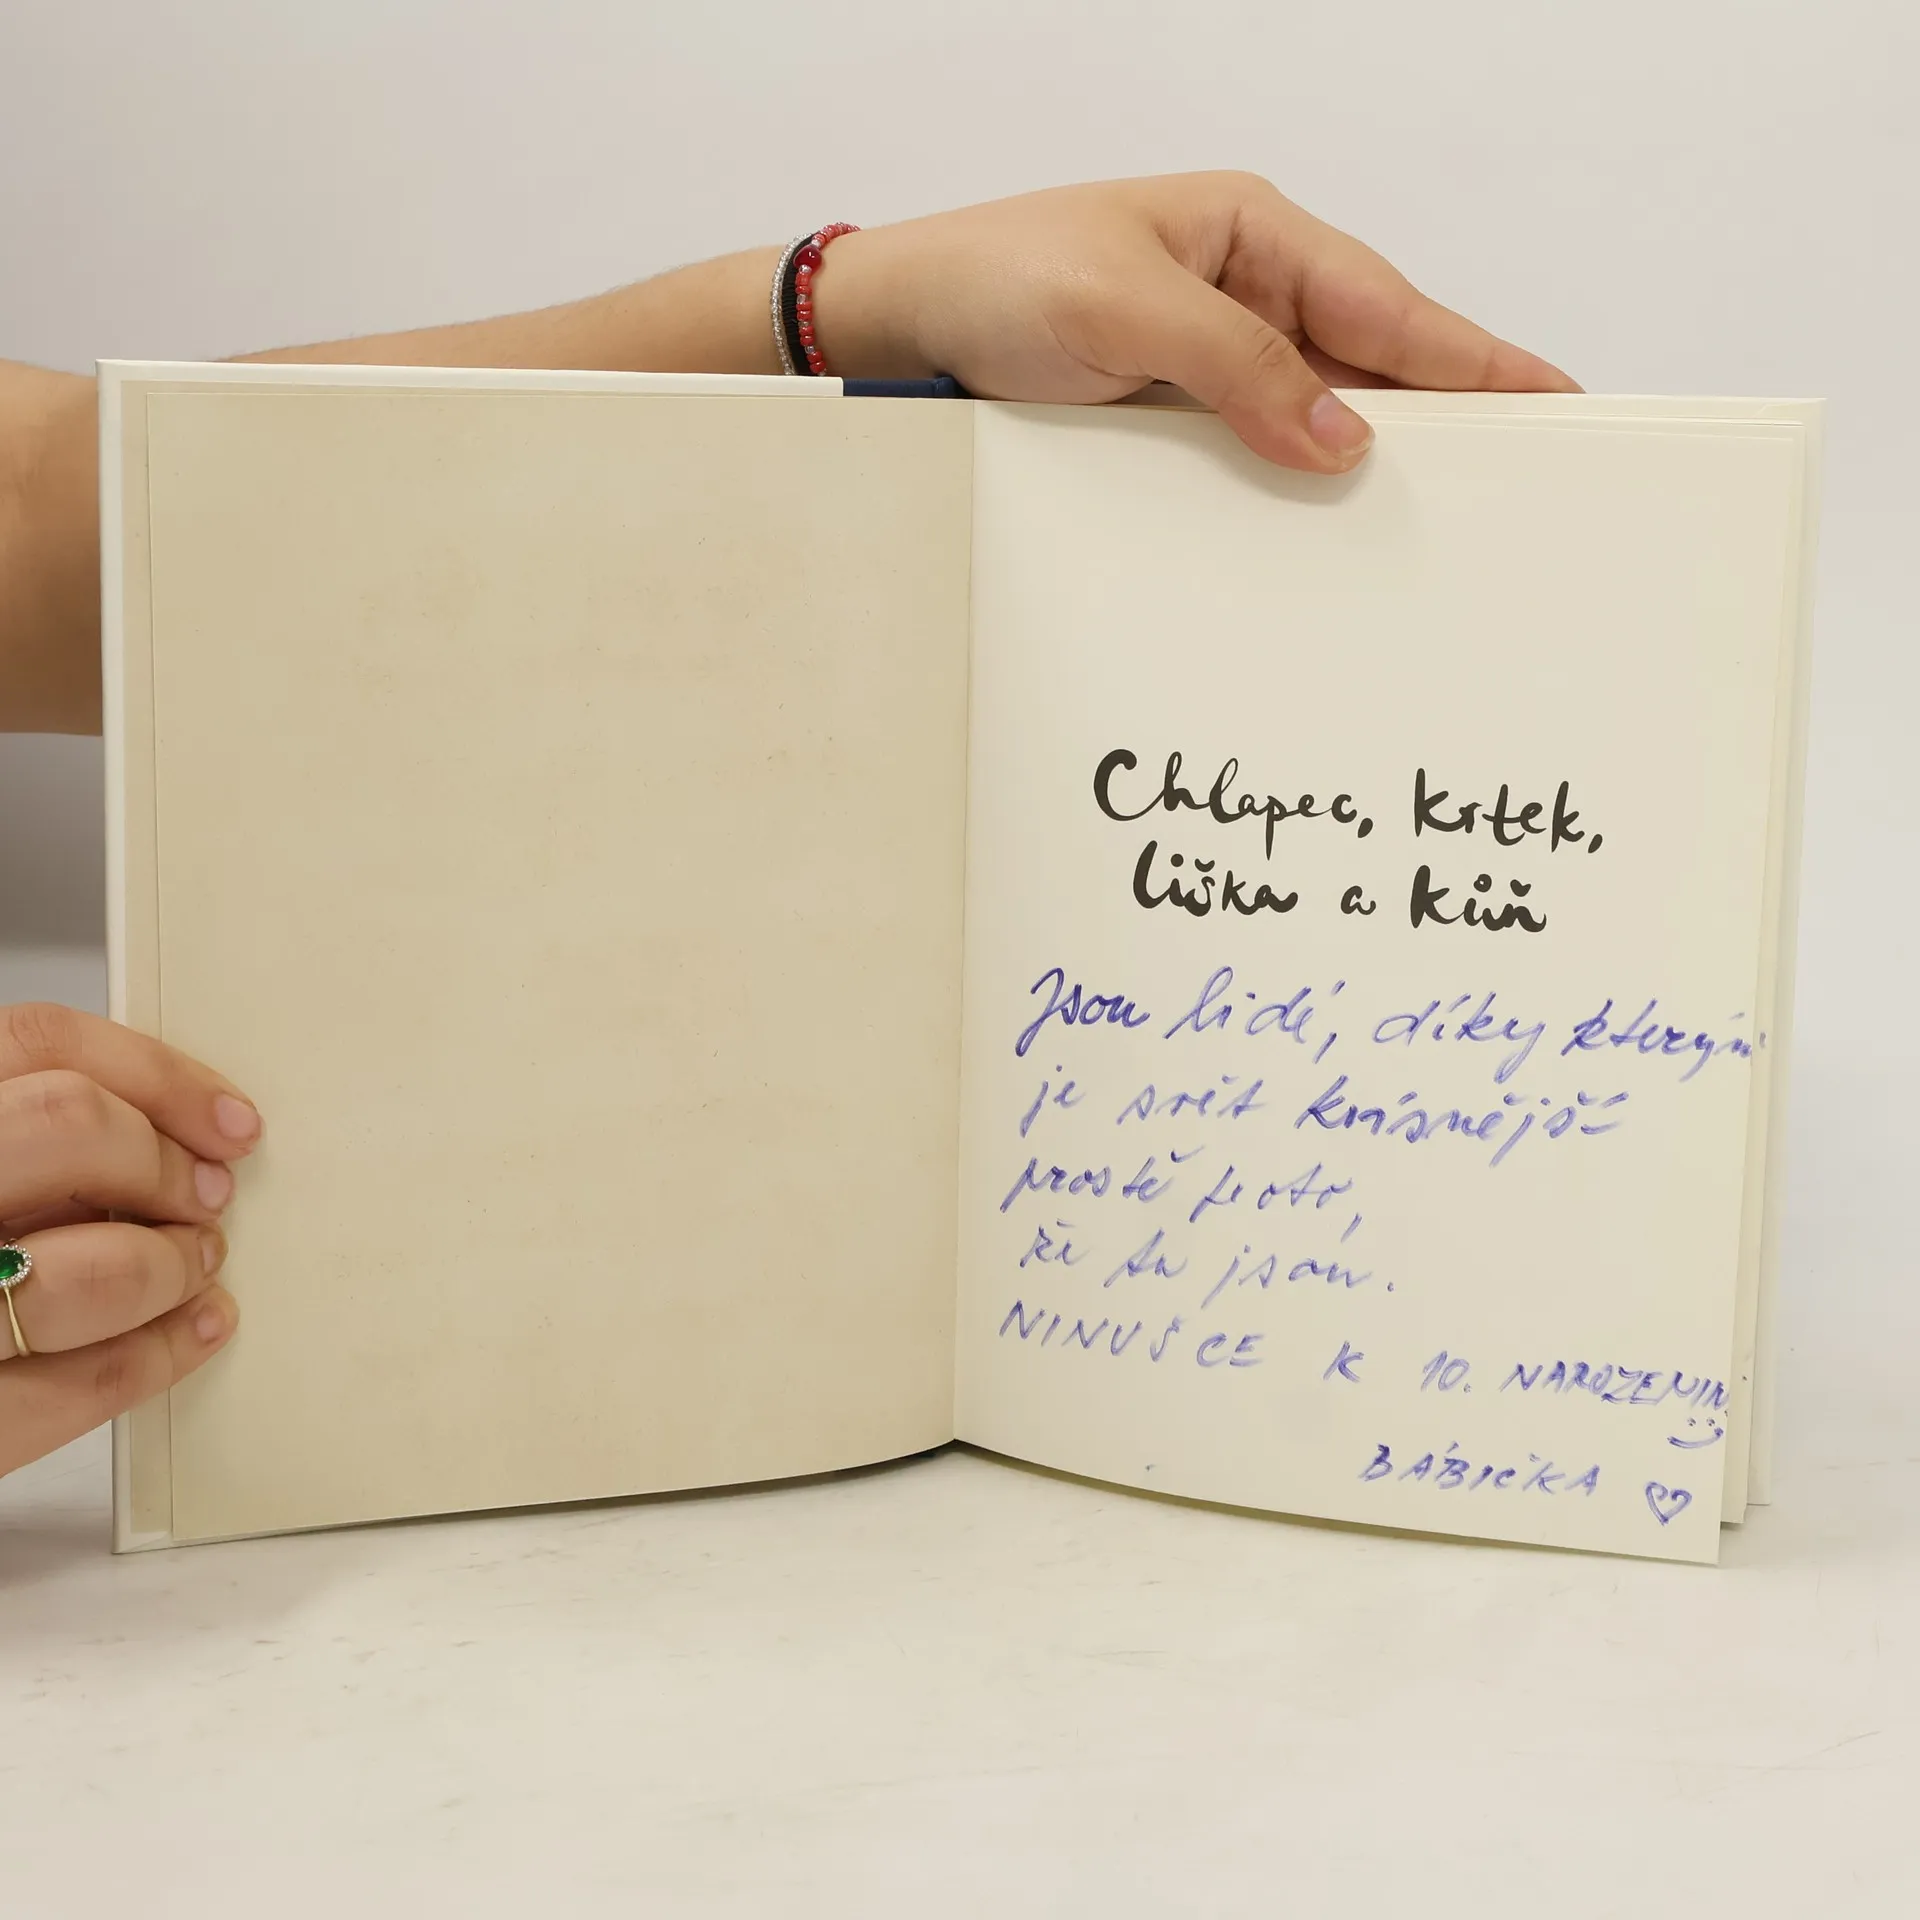 Chlapec, krtek,
liška a kůň
Jsou lidé, díky kterým
je svět krásnější
prostě proto,
že tu jsou.
NINUŠCE K 10. NAROZENIN
BABIČKA